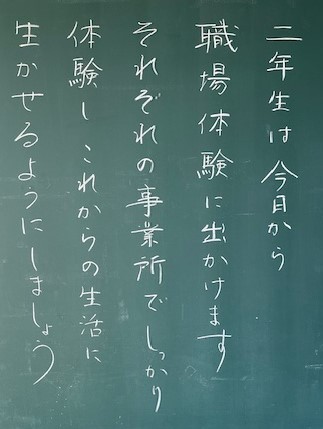 二年生は今日から
職場体験に出かけます
それぞれの事業所でしっかり
体験し これからの生活に
生かせるようにしましょう